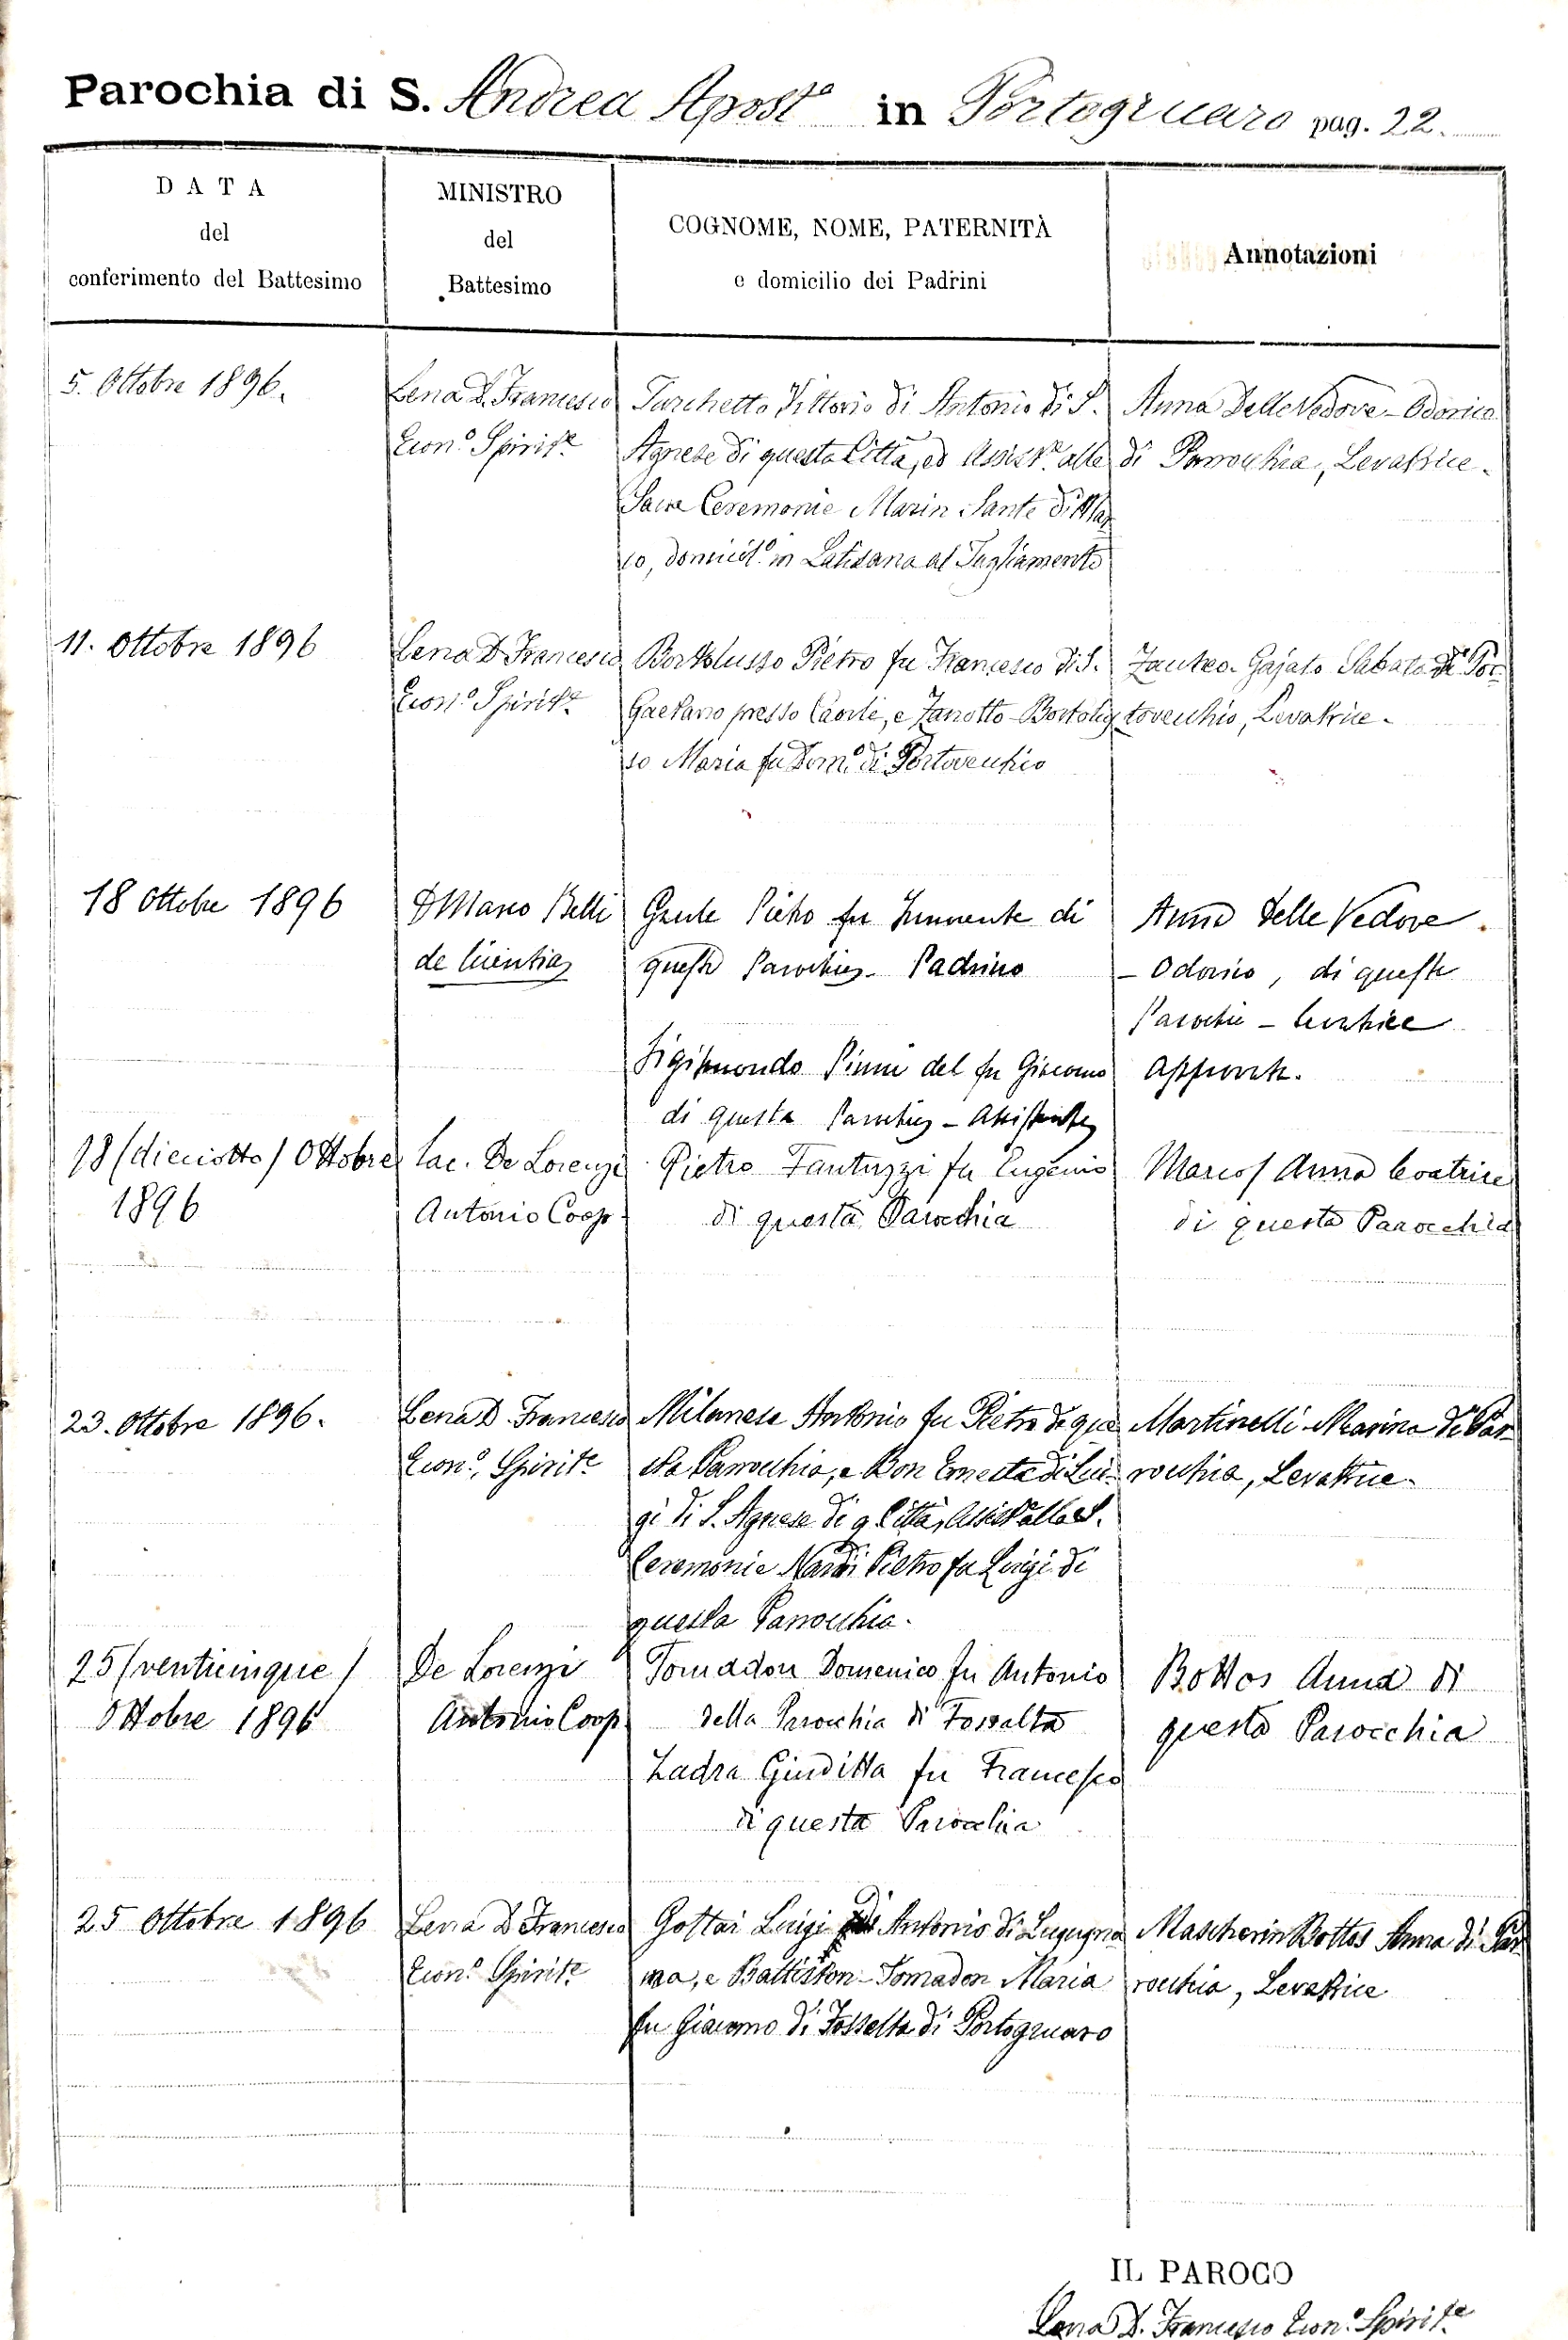 Parochia di S. Andrea Apost.° in Portogruaro pag. 22.
DATA
del
conferimento del Battesimo
MINISTRO
del
Battesimo
COGNOME, NOME, PATERNITÀ
e domicilio dei Padrini
Annotazioni
5. Ottobre 1896.
Lena D. Francesco
Econ.° Spirit.e
Turchetto Vittorio di Antonio di S.
Agnese di questa Città, ed Assist.e alle
Sacre Ceremonie Marin Sante di Mar
co, domicil.° in Latisana al Tagliamento
Anna Delle Vedove - Odorico
di Parrocchia, Levatrice.
11. Ottobre 1896
Lena D. Francesco
Econ.° Spirit.e
Bortolusso Pietro fu Francesco di S.
Gaetano presso Caorle, e Zanotto-Bortolus
so Maria fu Dom.° di Portovecchio
Gajato Sabata di Por-
tovecchio, Levatrice.
18 Ottobre 1896
D Marco Belli
de licentia
Pietro fu Innocente di
questa Parochia - Padrino
Sigismondo Pinni del fu Giacomo
di questa Parochia - Assistente
Anna Delle Vedove
- Odorico, di questa
Parochia - Levatrice
Approvata.
18 (dieciotto) Ottobre
1896
Sac. De Lorenzi
Antonio Coop.
Pietro Fantuzzi fu Eugenio
di questa Parochia
Anna levatrice
di questa Parocchia
23. Ottobre 1896.
Lena D. Francesco
Econ.°, Spirit.e
Milanese Antonio fu Pietro di que
sta Parrocchia, e Bon Ernesta di Lui-
gi di S. Agnese di q. Città, Assist.e alle S.
Ceremonie Nardi Pietro fu Luigi di
questa Parrocchia.
Martinelli Marina di Par
rocchia, Levatrice.
25 (venticinque)
Ottobre 1896
De Lorenzi
Antonio Coop.
Tomadon Domenico fu Antonio
della Parocchia di Fossalta
Zadra Giuditta fu Francesco
di questa Parocchia
Bottos Anna di
questa Parocchia
25 Ottobre 1896
Lena D. Francesco
Econ.° Spirit.e
Luigi di Antonio di Lugugna
na, e Battiston-Tomadon Maria
fu Giacomo di Fossalta di Portogruaro
Mascherin Bottos Anna di Par
rocchia, Levatrice
IL PAROCO
Lena D. Francesco Econ.° Spirit.e